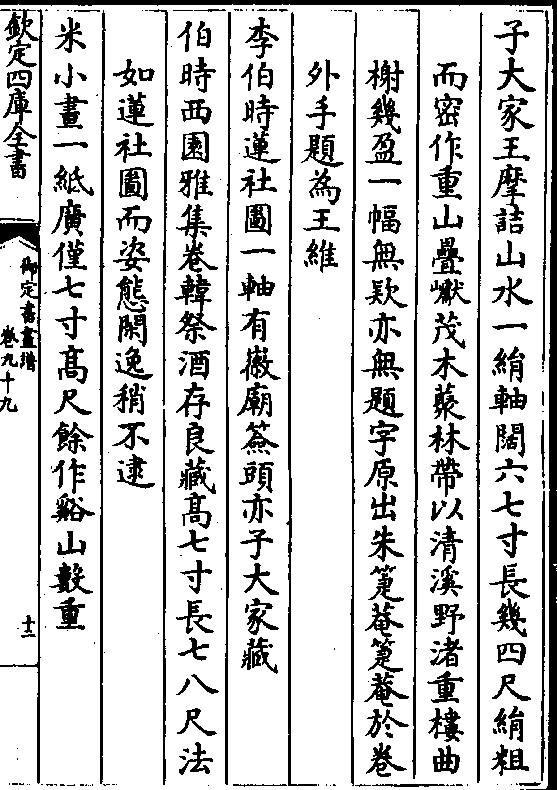 子大家王摩詰山水一絹軸闊六七寸長幾四尺絹粗
而密作重山疊巘茂木藂林帶以清溪野渚重樓曲
榭幾盈一幅無欵亦無題字原出朱篔菴篔菴於卷
外手題為王維
李伯時蓮社圖一軸有徽廟簽頭亦子大家藏
伯時西園雅集卷韓祭酒存良藏高七寸長七八尺法
如蓮社圖而姿態閑逸稍不逮
米小畫一紙廣僅七寸高尺餘作谿山數重
欽定四庫全書
御定書畫譜
卷九十九
十二